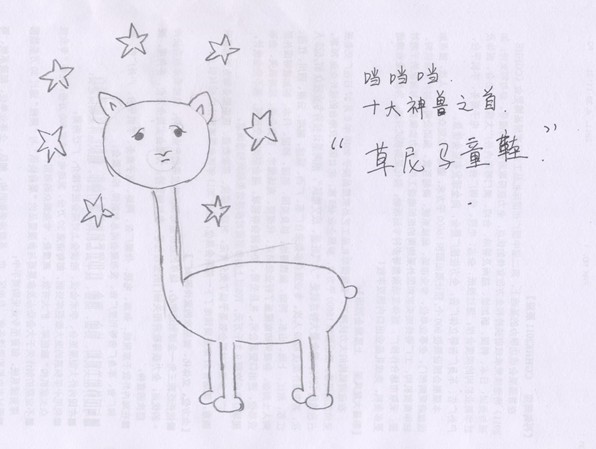 当当当.
十大神兽之首.
“草尼马童鞋.”